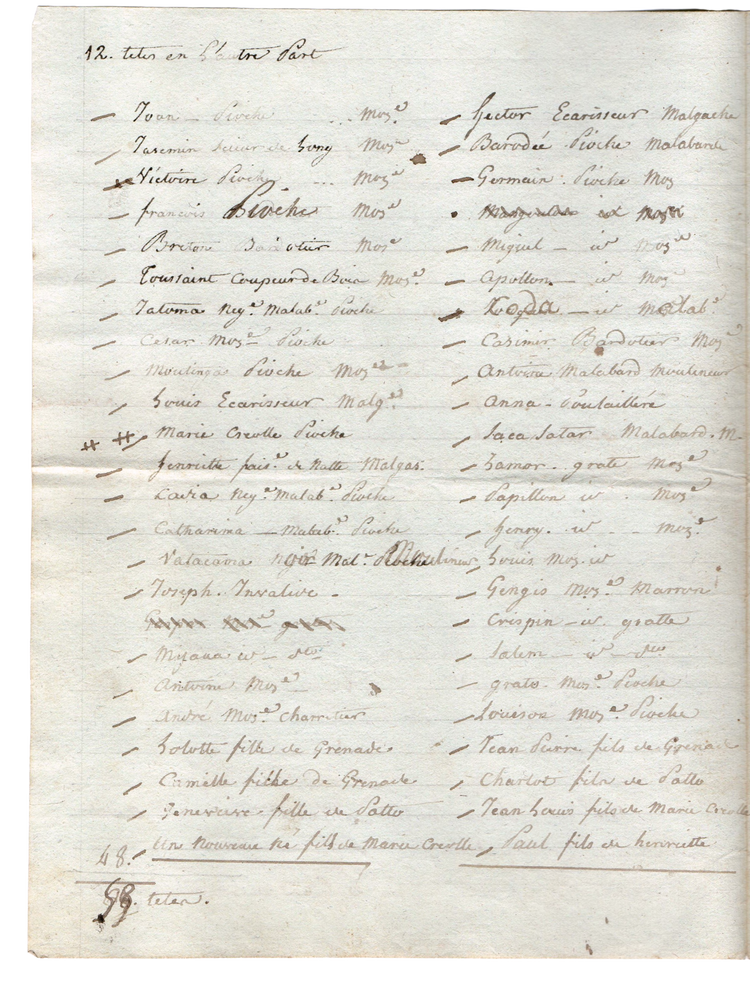 12. tetes en l'autre Part
Jean Pioche Moz.e
Jasemin de Moz.e
Victoire Pioche Moz.e
françois Pioche Moz.e
Breton Moz.e
Toussaint Coupeur de Bois Moz.e
Tatoma Neg.e Malab.e Pioche
Cesar Moz.e Pioche
Moutinga Pioche Moz.e
Louis Ecarisseur Malg.e
Marie Creolle Pioche
henriette de Natte Malgas.
Neg.e Malab.e Pioche
Catharima Malab.e Pioche
Vatacama Mal.e Pioche
Joseph. Invalive
Mijana
Antoine Moz.e
André Moz.e Charretier
Lolotte fille de Grenade
Camille fille de Grenade
Genevieve fille de Patto
un Nouveau Né fils de Marie Creolle
48.
tetes.
hector Ecarisseur Malgache
Barodée Pioche Malabarde
Germain Pioche Moz
Miguel id Moz.e
Apollon id Moz.e
id Malab.e
Casimir Bardotier Moz.e
Antoine Malabard Mouleneur
Anna Poulaillére
Saca Satar Malabard. M
Lamor grate Moz.e
Papillon id Moz.e
henry id Moz.e
Louis Moz. id
Gengis Moz.e Marron
Crispin id gratte
Salem id
grato Moz.e Pioche
Louison Moz.e Pioche
Jean Pierre fils de Grenade
Charlot fils de Patto
Jean Louis fils de Marie Creolle
Paul fils de henriette